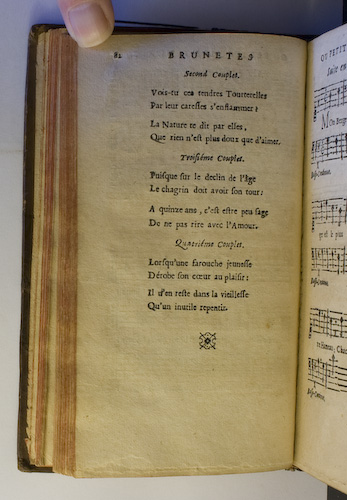 82 BRUNETES
Second Couplet.
Vois-tu ces tendres Tourterelles
Par leur caresses s'enflammer?
La Nature te dit par elles,
Que rien n'est plus doux que d'aimer.
Troisiéme Couplet.
Puisque sur le declin de l'âge
Le chagrin doit avoir son tour:
A quinze ans, c'est estre peu sage
De ne pas rire avec l'Amour.
Quatriéme Couplet.
Lorsqu'une farouche jeunesse
Dérobe son cœur au plaisir;
Il n'en reste dans la vieillesse
Qu'un inutile repentir.
OU PETIT
Suite en
MOn Berge